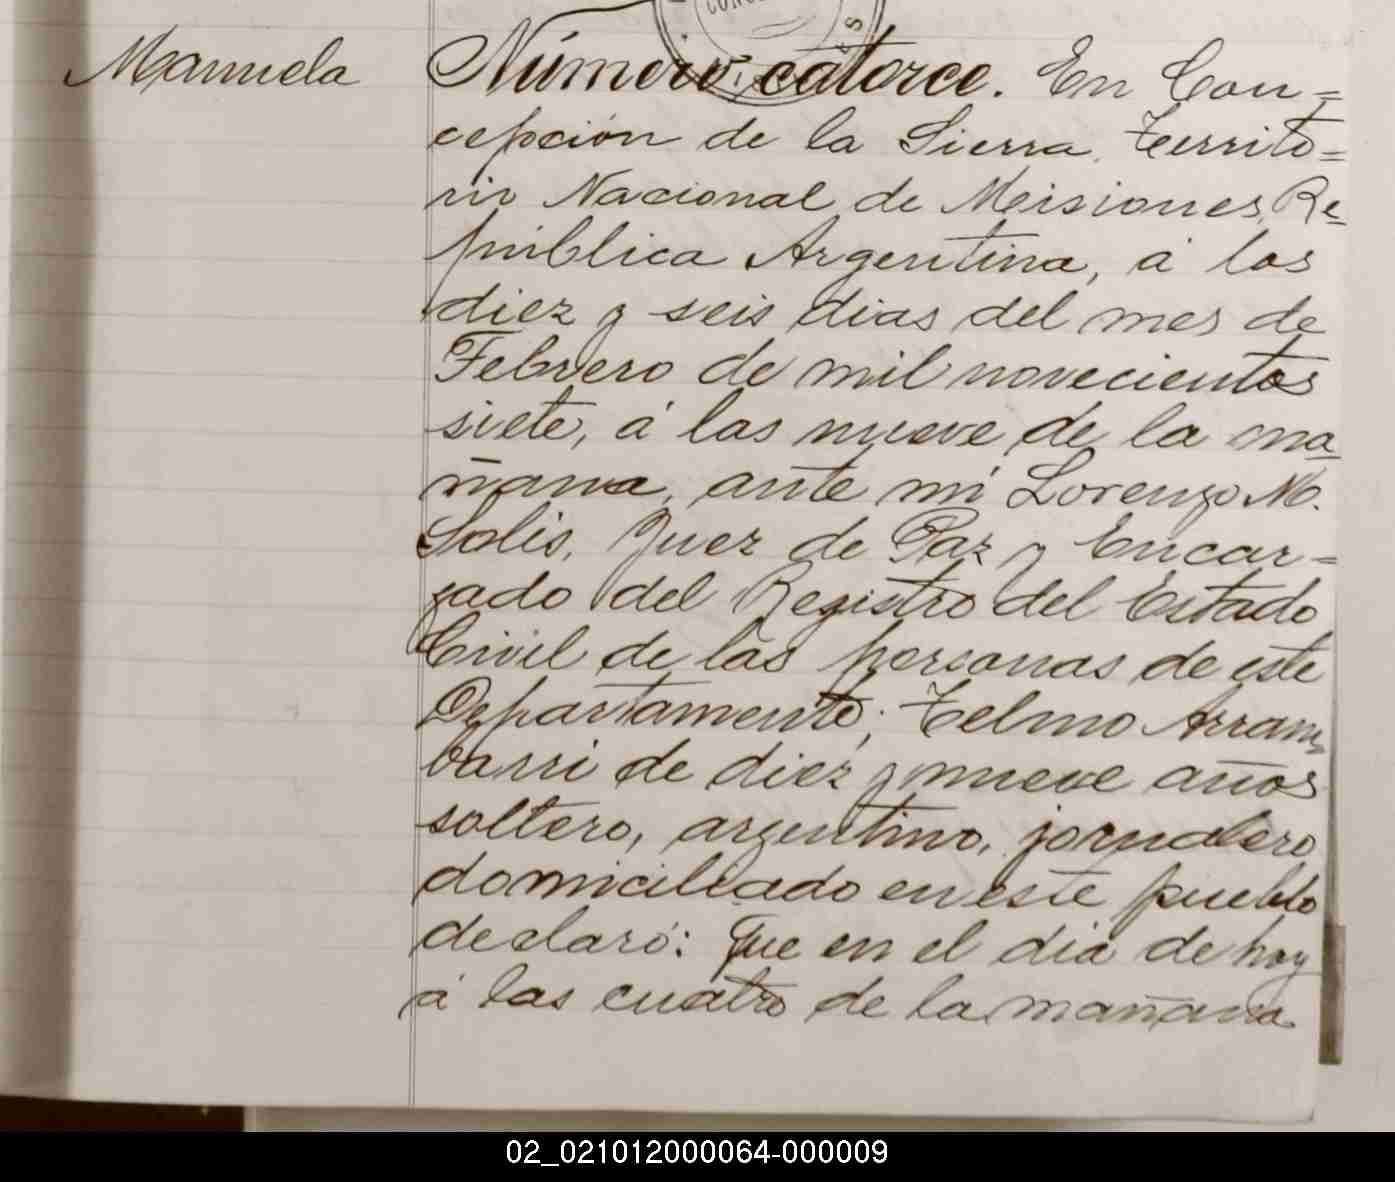 Manuela
Número catorce. En Con=
cepción de la Sierra, Territo=
rio Nacional de Misiones, Re=
pública Argentina, á los
diez y seis dias del mes de
Febrero de mil novecientos
siete, á las nueve de la ma
ñana, ante mi Lorenzo M.
Solis, Juez de Paz y Encar=
gado del Registro del Estado
Civil de las personas de este
Departamento; Telmo Arram
barri de diez y nueve años
soltero, argentino, jornalero
domiciliado en este pueblo
declaró: Que en el dia de hoy
á las cuatro de la mañana
02_021012000064-000009